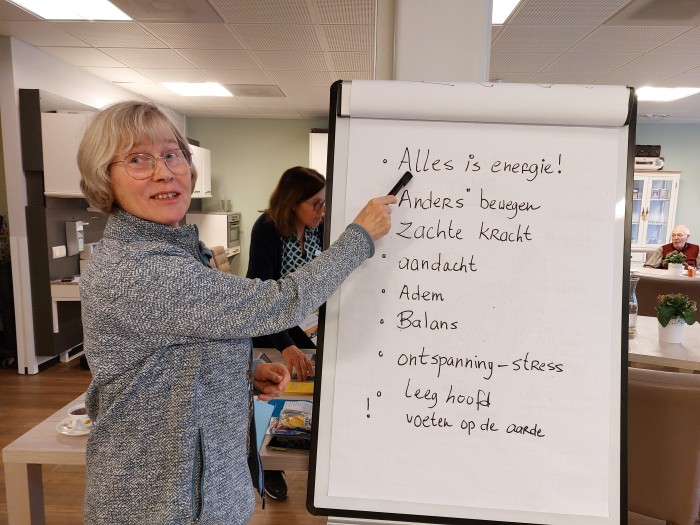 • Alles is energie!
• "Anders" bewegen
• zachte kracht
• aandacht
• Adem
• Balans
• ontspanning - stress
! • leeg hoofd
voeten op de aarde